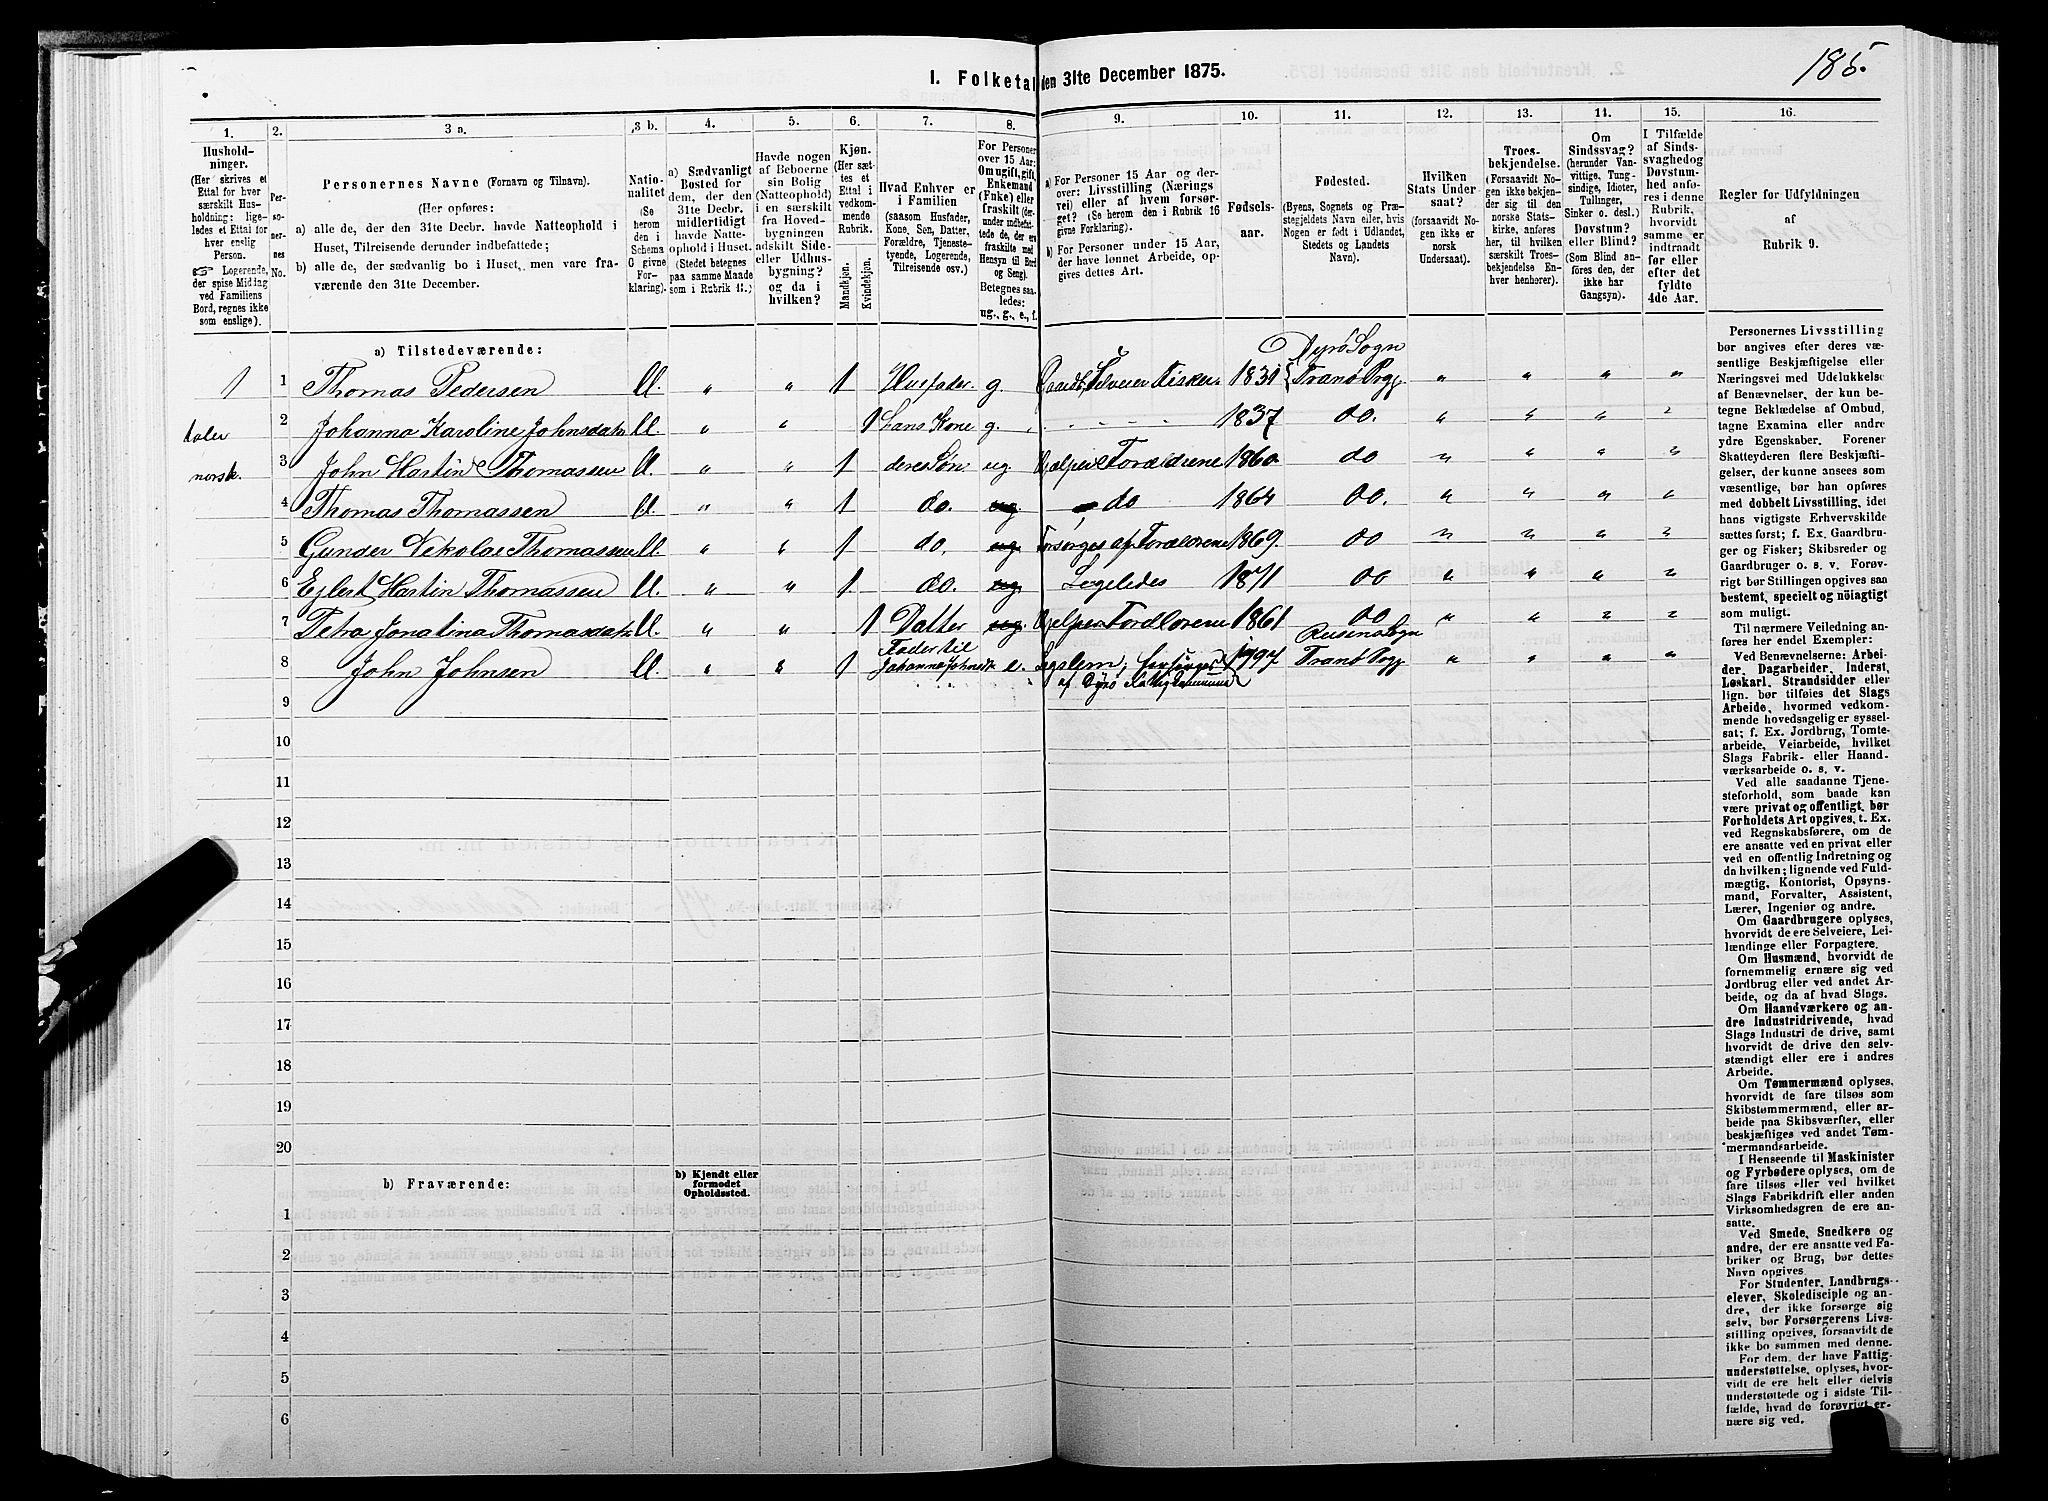 185.
I. Folketal den 31te December 1875.
1.
Hushold-
ninger.
(Her skrives et
Ettal for hver
særskilt Hus-
holdning; lige-
ledes et Ettal for
hver enslig
Person.
Logerende,
der spise Middag
ved Familiens
Bord, regnes ikke
som enslige).
2.
Per-
so-
ner-
nes
No.
3 a.
Personernes Navne (Fornavn og Tilnavn).
(Her opføres:
a) alle de, der den 31te Decbr. havde Natteophold i
Huset, Tilreisende derunder indbefattede;
b) alle de, der sædvanlig bo i Huset, men vare fra-
værende den 31te December.
3 b.
Natio-
nalitet
(Se
herom
den i
Schema
G givne
For-
klaring).
4.
a) Sædvanligt
Bosted for
dem, der den
31te Decbr.
midlertidigt
havde Natte-
ophold i Huset.
(Stedet betegnes
paa samme Maade
som i Rubrik 11.)
5.
Havde nogen
af Beboerne
sin Bolig
(Natteophold)
i en særskilt
fra Hoved-
bygningen
adskilt Side-
eller Udhus-
bygning?
og da i
hvilken?
6.
Kjøn.
(Her sæt-
tes et
Ettal i
vedkom-
mende
Rubrik.
Mandkjøn.
Kvindekjøn.
7.
Hvad Enhver er
i Familien
(saasom Husfader,
Kone, Søn, Datter,
Forældre, Tjeneste-
tyende, Logerende,
Tilreisende osv.)
8.
For Personer
over 15 Aar:
Om ugift, gift,
Enkemand
(Enke) eller
fraskilt (der-
under indbefat-
tede de, der ere
fraskilte med
Hensyn til Bord
og Seng).
Betegnes saa-
ledes:
ug., g., e., f.
9.
a) For Personer 15 Aar og der-
over: Livsstilling (Nærings-
vei) eller af hvem forsør-
get? (Se herom den i Rubrik 16
givne Forklaring).
b) For Personer under 15 Aar,
der have lønnet Arbeide, op-
gives dettes Art.
10.
Fødsels-
aar.
11.
Fødested.
(Byens, Sognets og Præ-
stegjeldets Navn eller, hvis
Nogen er født i Udlandet,
Stedets og Landets
Navn).
12.
Hvilken
Stats Under-
saat?
(forsaavidt No-
gen ikke er
norsk
Undersaat).
13.
Troes-
bekjendelse.
(Forsaavidt No-
gen ikke bekjen-
der sig til den
norske Stats-
kirke, anføres
her, til hvilken
særskilt Troes-
bekjendelse En-
hver henhører).
14.
Om
Sindssvag?
(herunder Van-
vittige, Tung-
sindige, Idioter,
Tullinger,
Sinker o. desl.)
Døvstum?
eller Blind?
(Som Blind an-
føres den, der
ikke har
Gangsyn).
15.
I Tilfælde
af Sinds-
svaghed og
Døvstum-
hed anfø-
res i denne
Rubrik,
hvorvidt
samme er
indtraadt
før eller
efter det
fyldte
4de Aar.
16.
Regler for Udfyldningen
af
Rubrik 9.
a) Tilstedeværende:
1 1 Thomas Pedersen " " 1 Husfader g. Gaardb, Selveier Fisker 1831 Dyrø Sogn Tranø Prgj " " " "
taler 2 Johanna Karoline Johnsdatr " " 1 hans Kone g. 1837 do. " " " "
norsk. 3 John Martin Thomassen " " 1 deres Søn ug. Hjelper Forældrene 1860 do " " " "
4 Thomas Thomassen " " 1 do. ug. do 1864 do. " " " "
5 Gunder Nikolai Thomassen " " 1 do. ug. Forsørges af Forældrene 1869. do " " " "
6 Ejlert Martin Thomassen " " 1 do. ug Ligeledes 1871 do " " " "
7 Petra Jonatina Thomasdatr " " 1 Datter ug. Hjelper Forældrene 1861 do " " " "
8 John Johnsen " " 1 Fader til Johanna Johnsd. e. Lægslem; forsørges af Dyrø Fattigkommune 1797 Reisens Sogn Tranø Prgj " " " "
9
10
11
12
13
14
15
16
17
18
19
20
b) Fraværende:
b) Kjendt eller
formodet
Opholdssted.
1
2
3
4
5
6
Personernes Livsstilling
bør angives efter deres væ-
sentlige Beskjæftigelse eller
Næringsvei med Udelukkelse
af Benævnelser, der kun be-
tegne Beklædelse af Ombud,
tagne Examina eller andre
ydre Egenskaber. Forener
Skatteyderen flere Beskjæfti-
gelser, der kunne ansees som
væsentlige, bør han opføres
med dobbelt Livsstilling, idet
hans vigtigste Erhvervskilde
sættes først; f. Ex. Gaardbru-
ger og Fisker; Skibsreder og
Gaardbruger o. s. v. Forøv-
rigt bør Stillingen opgives saa
bestemt, specielt og nøiagtigt
som muligt.
Til nærmere Veiledning an-
føres her endel Exempler:
Ved Benævnelserne: Arbei-
der, Dagarbeider, Inderst,
Løskarl, Strandsidder eller
lign. bør tilføies det Slags
Arbeide, hvormed vedkom-
mende hovedsagelig er syssel-
sat; f. Ex. Jordbrug, Tomte-
arbeide, Veiarbeide, hvilket
Slags Fabrik- eller Haand-
værksarbeide o. s. v.
Ved alle saadanne Tjene-
steforhold, som baade kan
være privat og offentligt, bør
Forholdets Art opgives, t. Ex.
ved Regnskabsførere, om de
ere ansatte ved en privat eller
ved en offentlig Indretning og
da hvilken; lignende ved Fuld-
mægtig, Kontorist, Opsyns-
mand, Forvalter, Assistent,
Lærer, Ingeniør og andre.
Om Gaardbrugere oplyses,
hvorvidt de ere Selveiere, Lei-
lændinge eller Forpagtere.
Om Husmænd, hvorvidt de
fornemmelig ernære sig ved
Jordbrug eller ved andet Ar-
beide, og da af hvad Slags.
Om Haandværkere og an-
dre Industridrivende, hvad
Slags Industri de drive, samt
hvorvidt de drive den selv-
stændigt eller ere i andres
Arbeide.
Om Tømmermænd oplyses,
hvorvidt de fare tilsøs som
Skibstømmermænd, eller ar-
beide paa Skibsværfter, eller
beskjæftiges ved andet Tøm-
mermandsarbeide.
I Henseende til Maskinister
og Fyrbødere oplyses, om de
fare tilsøs eller ved hvilket
Slags Fabrikdrift eller anden
Virksomhedsgren de ere an-
satte.
Ved Smede, Snedkere og
andre, der ere ansatte ved Fa-
briker og Brug, bør dettes
Navn opgives.
For Studenter, Landbrugs-
elever, Skoledisciple og an-
dre, der ikke forsørge sig
selv, bør Forsørgerens Livs-
stilling opgives, forsaavidt de
ikke bo sammen med denne.
For dem, der have Fattig-
understøttelse, oplyses, hvor-
vidt de ere helt eller delvis
understøttede og i sidste Til-
fælde, hvad de forøvrigt er-
nære sig ved.